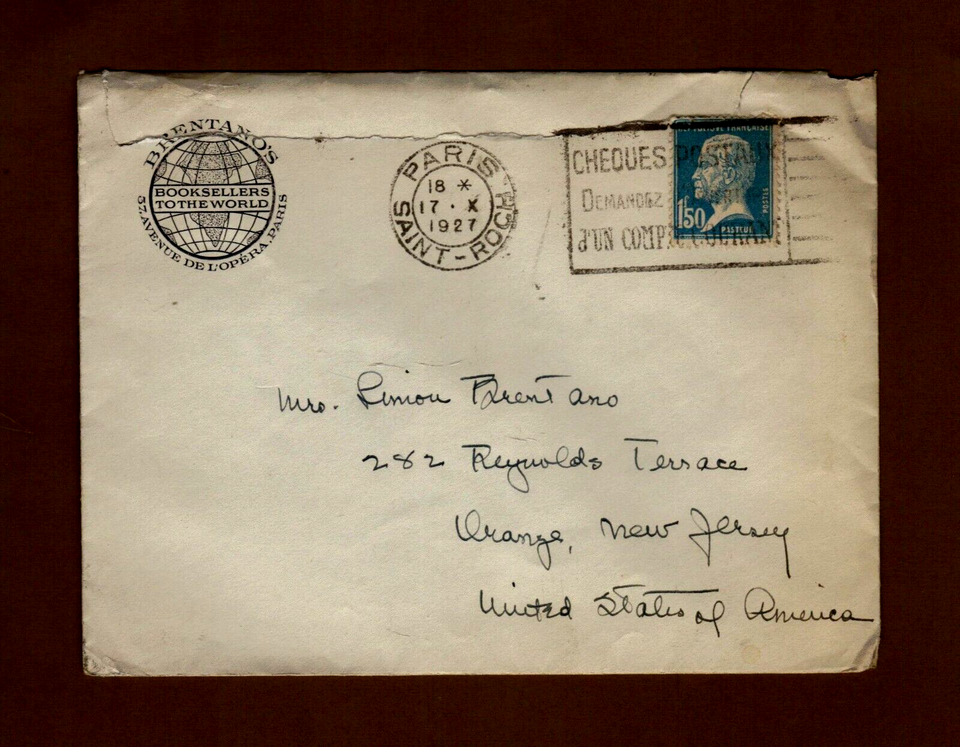 BRENTANO'S
BOOKSELLERS
TO THE WORLD
37, AVENUE DE L'OPÉRA, PARIS
PARIS
18 *
17 · X
1927
SAINT-ROCH
CHEQUES POSTAUX
DEMANDEZ
d'UN COMPTE COURANT
REPUBLIQUE FRANÇAISE
POSTES
1F50
PASTEUR
Mrs. Simon Brentano
282 Reynolds Terrace
Orange, New Jersey
United States of America